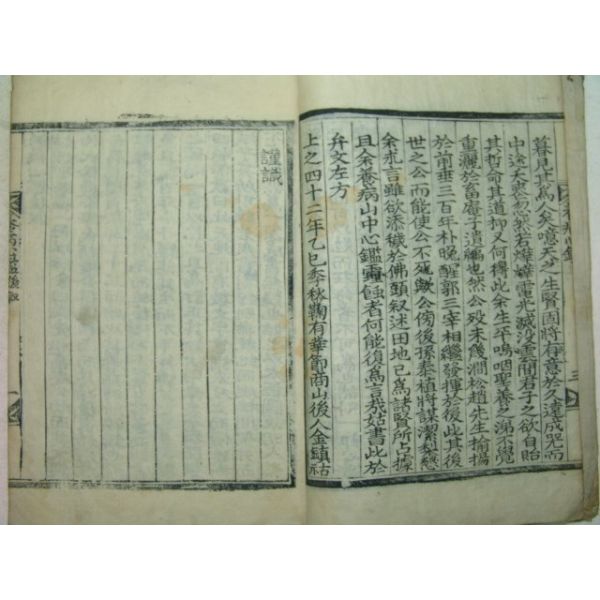 暮見其爲人矣噫天之生賢固將有意於久達成咒而
中途夭喪忽然若燁燁電光滅沒雲間君子之欲自貽
其哲命其道抑又何得此余生平嗚咽聖養之涕不覺
重灑於畜庵子遺編也然公歿未幾澗松趙先生揄揚
於前垂三百年朴晚醒郭三宰相繼發揮於後此其後
世之公而能使公不死歟公傍後孫秦植將謀潔梨懇
余求言雖欲添穢於佛頭叙述田地已爲諸賢所占據
且余養病山中心鑑蝕者何能復爲言哉姑書此於
弁文左方
上之四十二年乙巳季秋鞠有華節商山後人金鎭祜
謹識